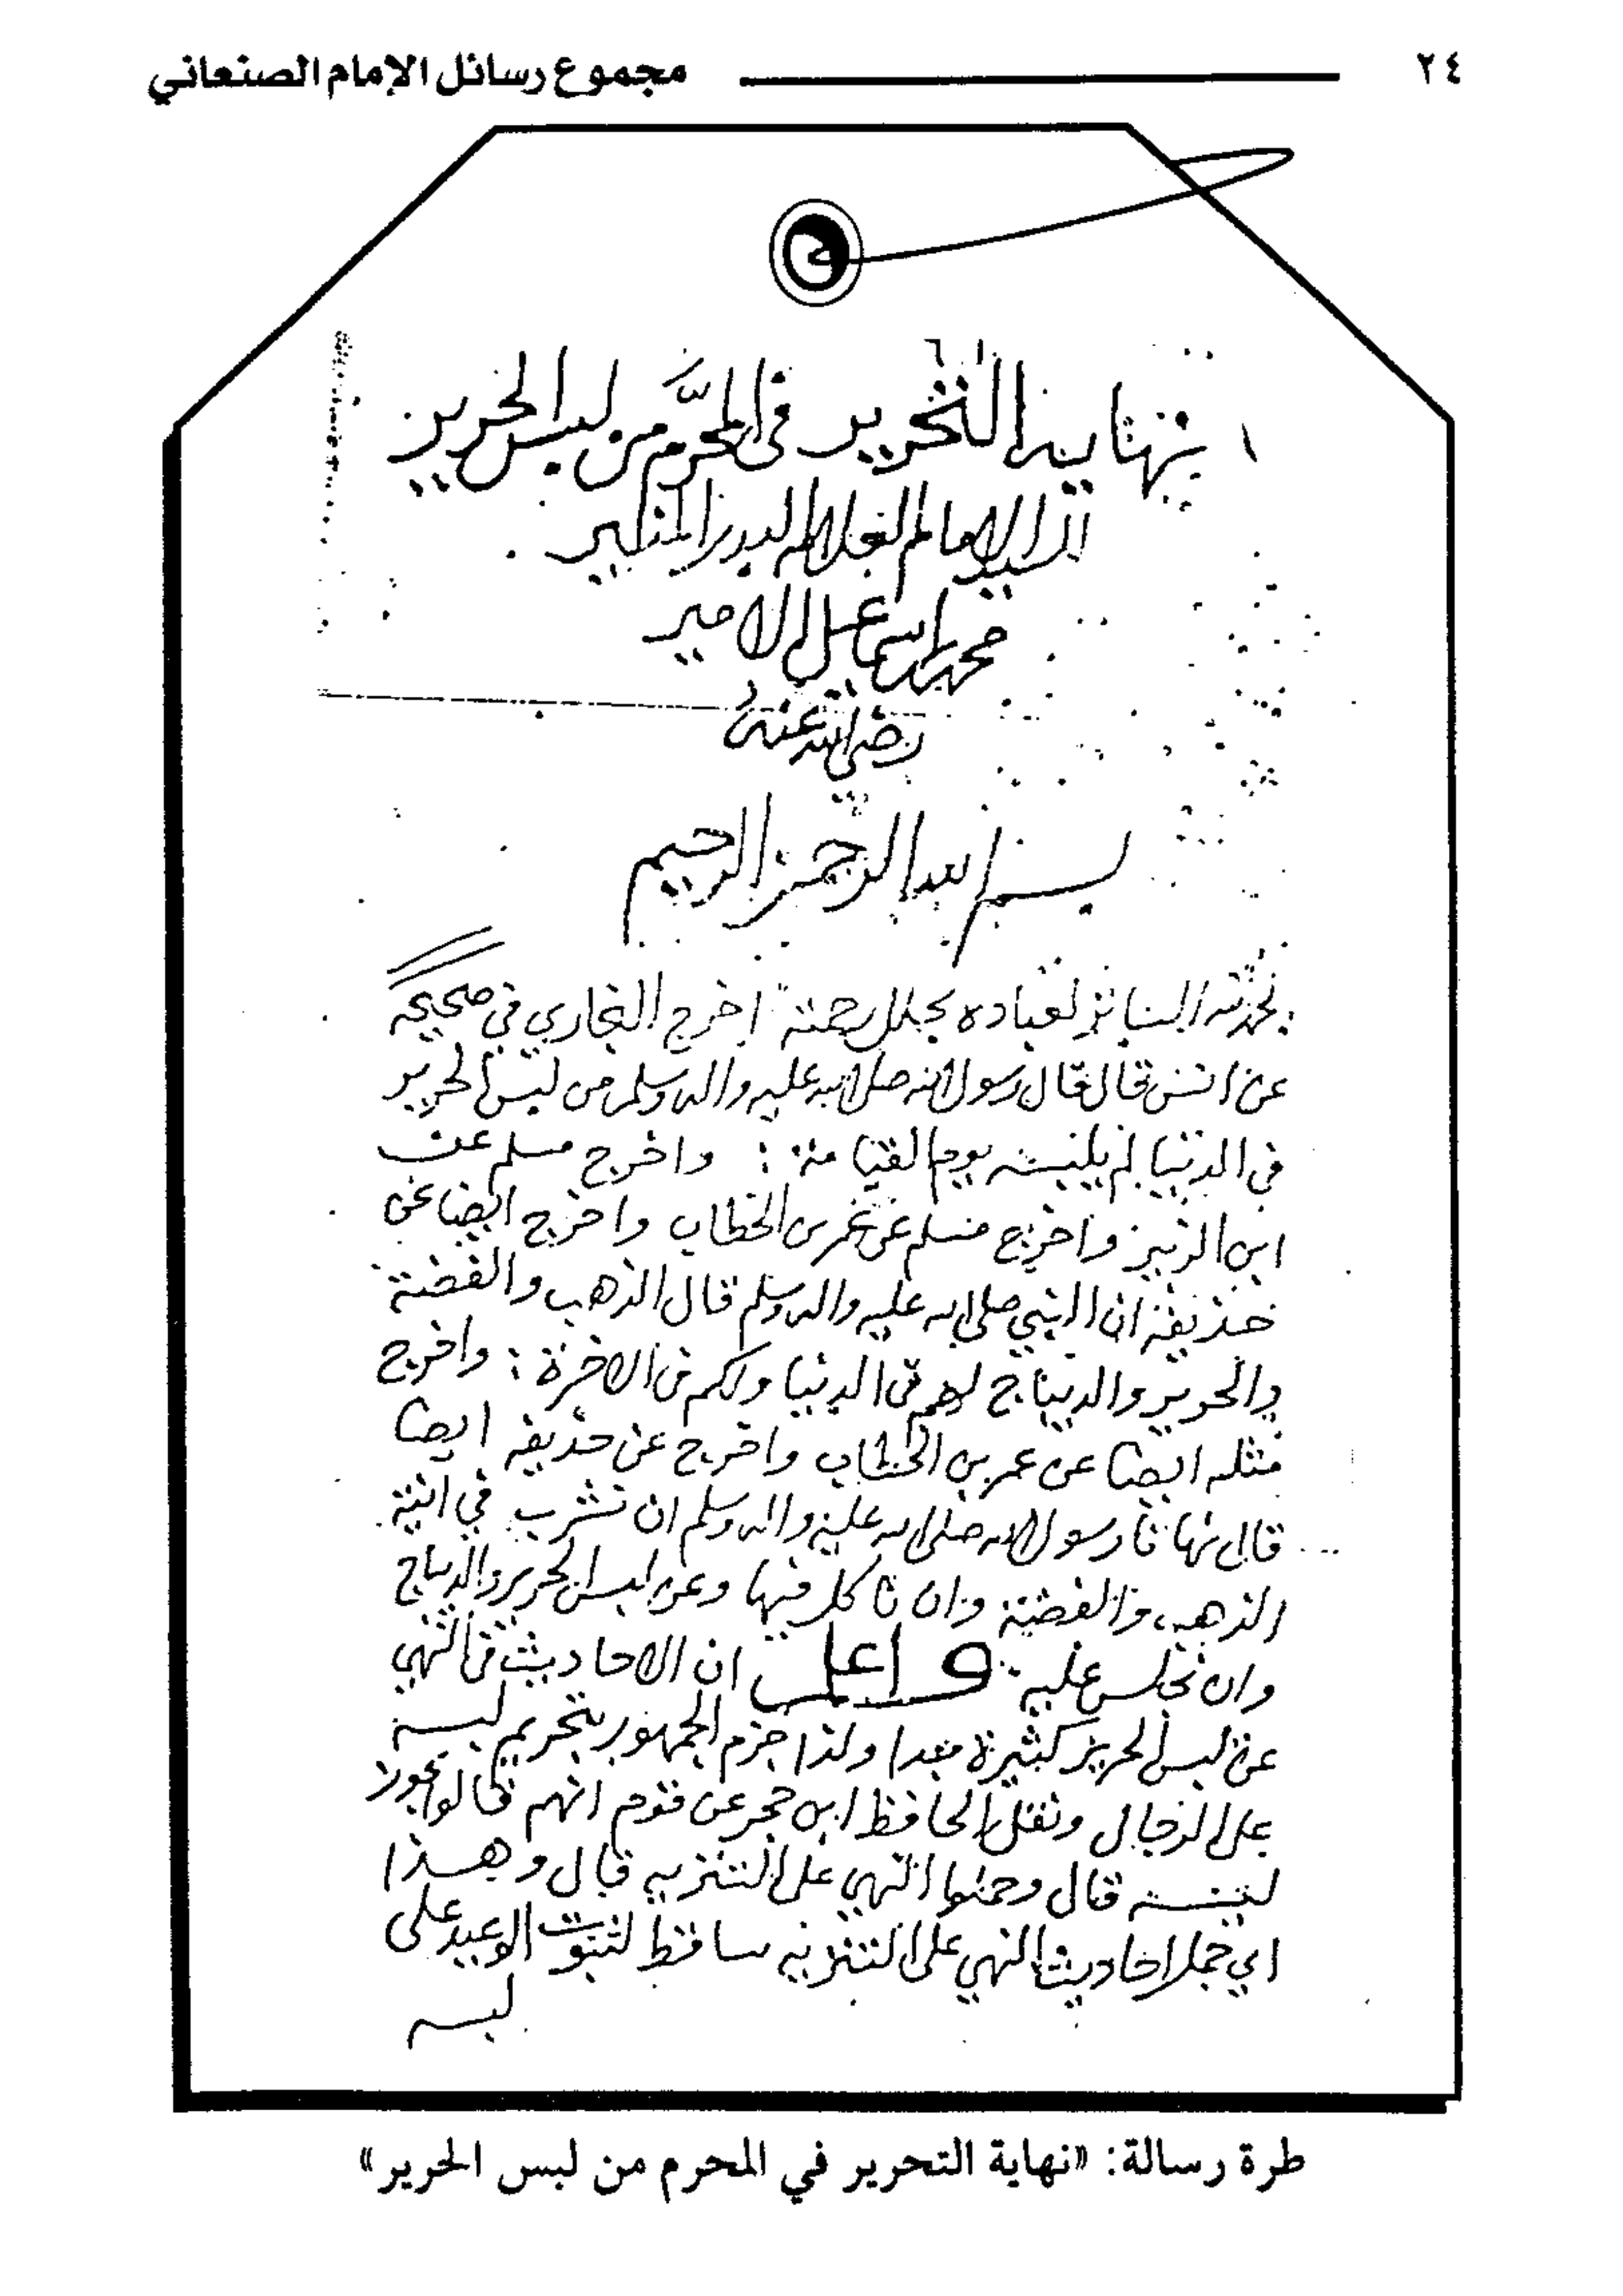 ٢٤ مجموع رسائل الإمام الصنعاني
نهاية التحرير في المحرَّم من لبس الحرير
السيد الامام العلامه البدر المنير
محمد بن اسماعيل الامير
رضي الله عنه
بسم الله الرحمن الرحيم
لعباده رحمته اخرج البخاري في صحيحه
عن انس قال قال رسول الله صلى الله عليه واله وسلم من لبس الحرير
في الدنيا لم يلبسه يوم القيامة : واخرج مسلم عن
ابن الزبير واخرج مسلم عن عمر بن الخطاب واخرج ايضا عن
حذيفة ان النبي صلى الله عليه واله وسلم قال الذهب والفضة
والحرير والديباج لهم في الدنيا ولكم في الاخرة : واخرج
مثله ايضا عن عمر بن الخطاب واخرج عن حذيفه ايضا
قال نهانا رسول الله صلى الله عليه واله وسلم ان نشرب في انية
الذهب والفضة وان ناكل فيها وعن لبس الحرير والديباج
وان نجلس عليه واعلم ان الاحاديث في النهي
عن لبس الحرير كثيرة جدا ولذا جزم الجمهور بتحريم لبسه
على الرجال ونقل الحافظ ابن حجر عن قوم انهم قالوا يجوز
لبسه قال وحملوا النهي على التنزيه قال وهذا
اي حمل احاديث النهي على التنزيه ساقط لثبوت الوعيد على
لبسه
طرة رسالة: «نهاية التحرير في المحرم من لبس الحرير»